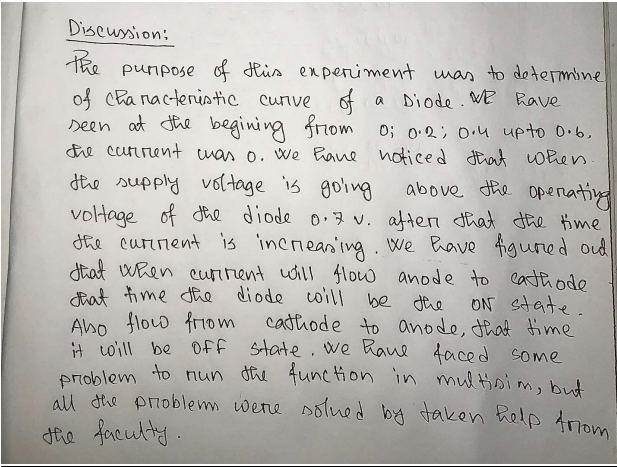 Discussion:
The purpose of this experiment was to determine
of characteristic curve of a Diode. WE have
seen at the begining from 0; 0.2; 0.4 upto 0.6,
the current was 0. We have noticed that when
the supply voltage is going above the operating
voltage of the diode 0.7 v. after that the time
the current is increasing. We have figured out
that when current will flow anode to cathode
that time the diode will be the ON state.
Also flow from cathode to anode, that time
it will be OFF state. We have faced some
problem to run the function in multisim, but
all the problem were solved by taken help from
the faculty.